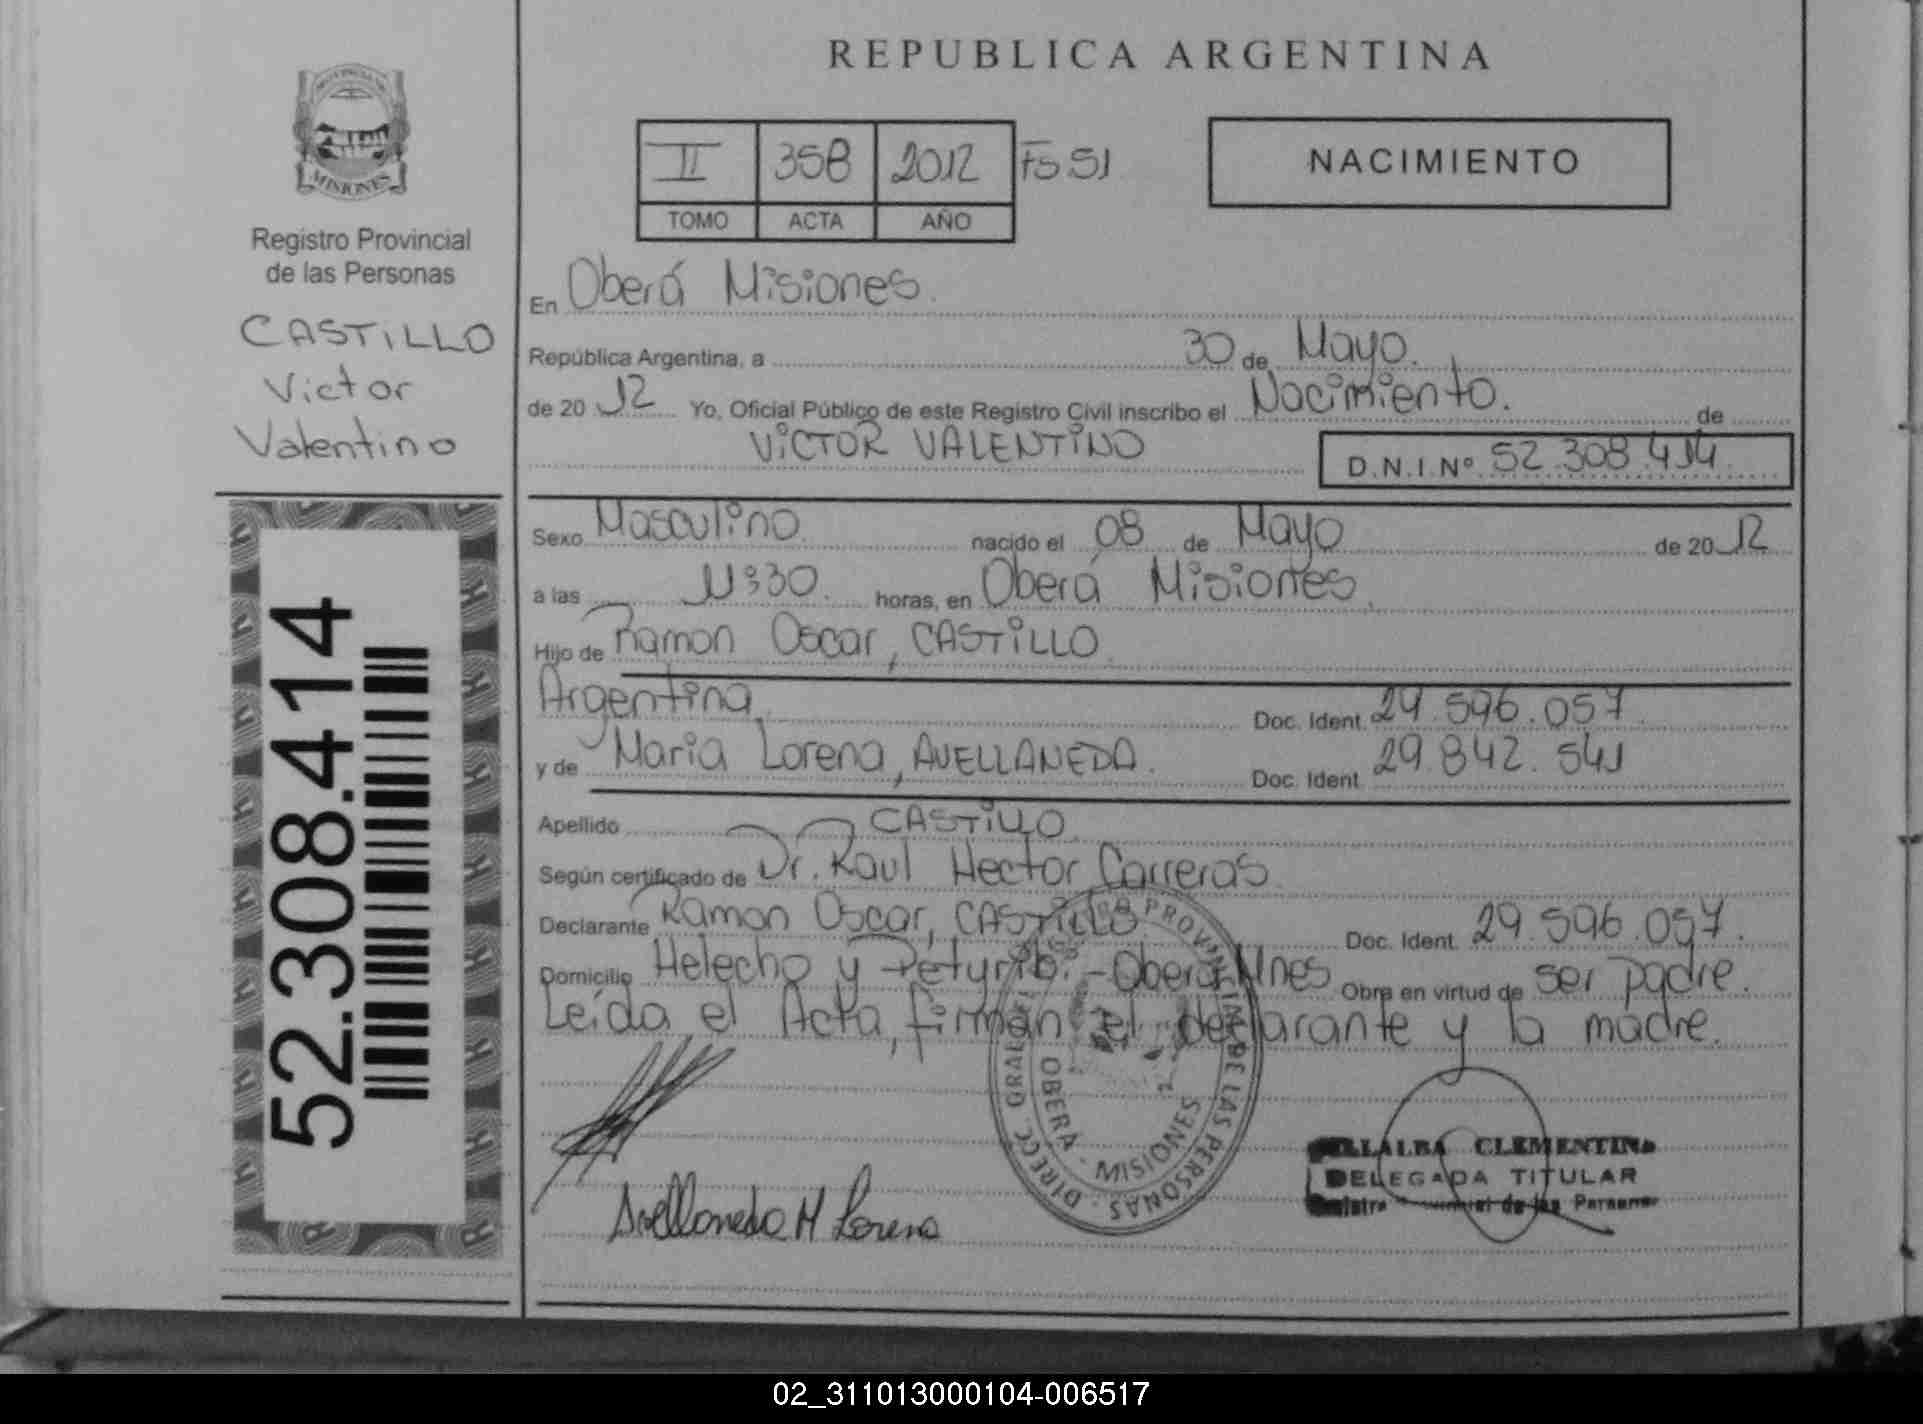 REPUBLICA ARGENTINA
PROVINCIA DE
MISIONES
Registro Provincial
de las Personas
CASTILLO
Victor
Valentino
52.308.414
II 358 2012 Fs 51
TOMO ACTA AÑO
NACIMIENTO
En Oberá Misiones.
República Argentina, a 30 de Mayo.
de 2012 Yo, Oficial Público de este Registro Civil inscribo el Nacimiento. de
VICTOR VALENTINO D.N.I.Nº 52.308.414
Sexo Masculino nacido el 08 de Mayo de 2012
a las 11:30. horas, en Oberá Misiones.
Hijo de Ramon Oscar, CASTILLO
Argentina Doc. Ident. 29.596.057
y de Maria Lorena, AVELLANEDA. Doc. Ident. 29.842.541
Apellido CASTILLO
Según certificado de Dr. Raul Hector Carreras
Declarante Ramon Oscar, CASTILLO Doc. Ident. 29.596.057.
Domicilio Helecho y -Oberá Mnes Obra en virtud de ser padre.
Leída el Acta, firman el declarante y la madre.
OBERÁ - MISIONES
Avellaneda M Lorena
VILLALBA CLEMENTINA
DELEGADA TITULAR
de las Personas
02_311013000104-006517